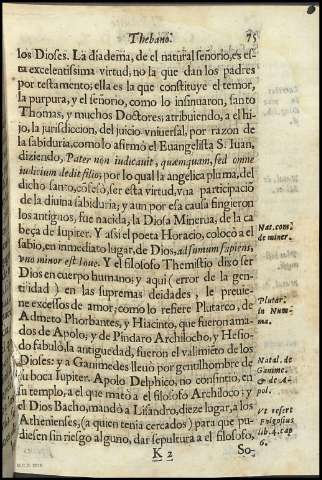 Thebano.
75
los Dioses. La diadema, de el natural señorio, es es-
ta excelentissima virtud, no la que dan los padres
por testamento; ella es la que constituye el temor,
la purpura, y el señorio, como lo insinuaron, santo
Thomas, y muchos Doctores; atribuiendo, a el hi-
jo, la jurisdiccion, del juicio vniuersal, por razon de
la sabiduria, como lo afirmò el Euangelista S. Iuan,
diziendo, Pater non iudicauit, quæmquam, sed omne
iudicium dedit filio; por lo qual la angelica pluma, del
dicho santo, cõfesò, ser esta virtud, vna participaciõ
de la diuina sabiduria; y aun por esa causa fingieron
los antiguos, fue nacida, la Diosa Minerua, de la ca
beça de Iupiter. Y assi el poeta Horacio, colocò a el
sabio, en inmediato lugar, de Dios, ad sumum sapiens,
vno minor est Ioue. Y el filosofo Themistio dixo ser
Dios en cuerpo humano; y aqui (error de la gen-
tilidad) en las supremas deidades, le preuie-
ne excessos de amor; como lo refiere Plutarco, de
Admeto Phorbantes, y Hiacinto, que fueron ama-
dos de Apolo; y de Pindaro Archilocho, y Hesio-
do fabulò, la antiguedad, fueron el valimiẽto de los
Dioses: y a Ganimedes lleuò por gentilhombre de
su boca Iupiter. Apolo Delphico, no consintio, en
su templo, a el que matò a el filosofo Archiloco; y
el Dios Bacho, mandò a Lisandro, dieze lugar, a los
Athenienses, (a quien tenia cercados) para que pu-
diesen sin riesgo alguno, dar sepultura a el filosofo,
K 2
So-
Nat. com.
de miner.
Plutar.
in Num-
ma.
Natal. de
Ganime.
& de A-
pol.
Vt refert
Fulgosius
lib. 4. cap
6.